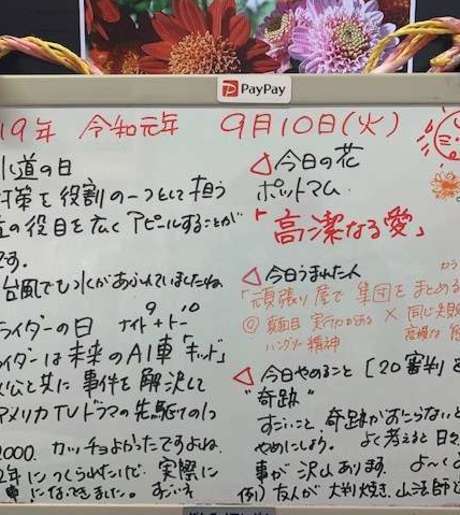 PayPay
19年 令和元年 9月10日(火)
水道の日
対策を役割の一つとして担う
の役目を広くアピールすることが
です。
台風でも水があふれていましたね
ライダーの日 ナイト+トー
9 10
ライダーは未来のAI車「キッド」
公と共に事件を解決して
アメリカTVドラマの先駆けの1つ
2000. カッチョよかったですよね.
2年につくられたけど、実際に
になってきました。すごいネ
△今日の花
ポットマム
「高潔なる愛」
△今日うまれた人
「頑張り屋で 集団をまとめる
◎ 真面目 実行力がある × 同じ失敗
ハングリー精神
△今日やめること [20 審判]
"奇跡"
すごいこと、奇跡がおこらないと
やめにしよう。 よく考えると日々
事が沢山あります. よ〜く
例) 友人が 大判焼き、山法師と